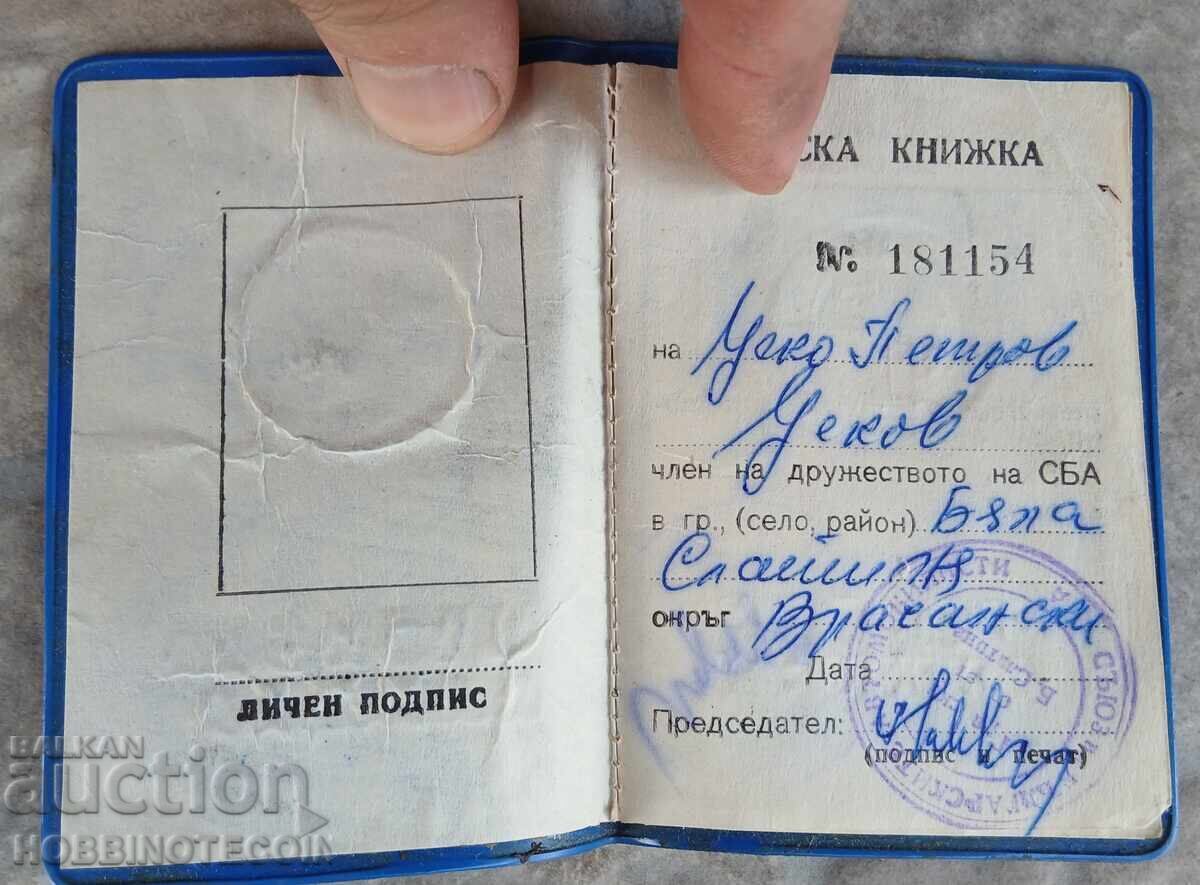 ЛИЧЕН ПОДПИС
СКА КНИЖКА
№ 181154
на Цеко Петров
Цеков
член на дружеството на СБА
в гр., (село, район) Бяла
Слатина
окръг Врачански
Дата
Председател:
(подпис и печат)
BALKAN
auction
HOBBINOTECOIN